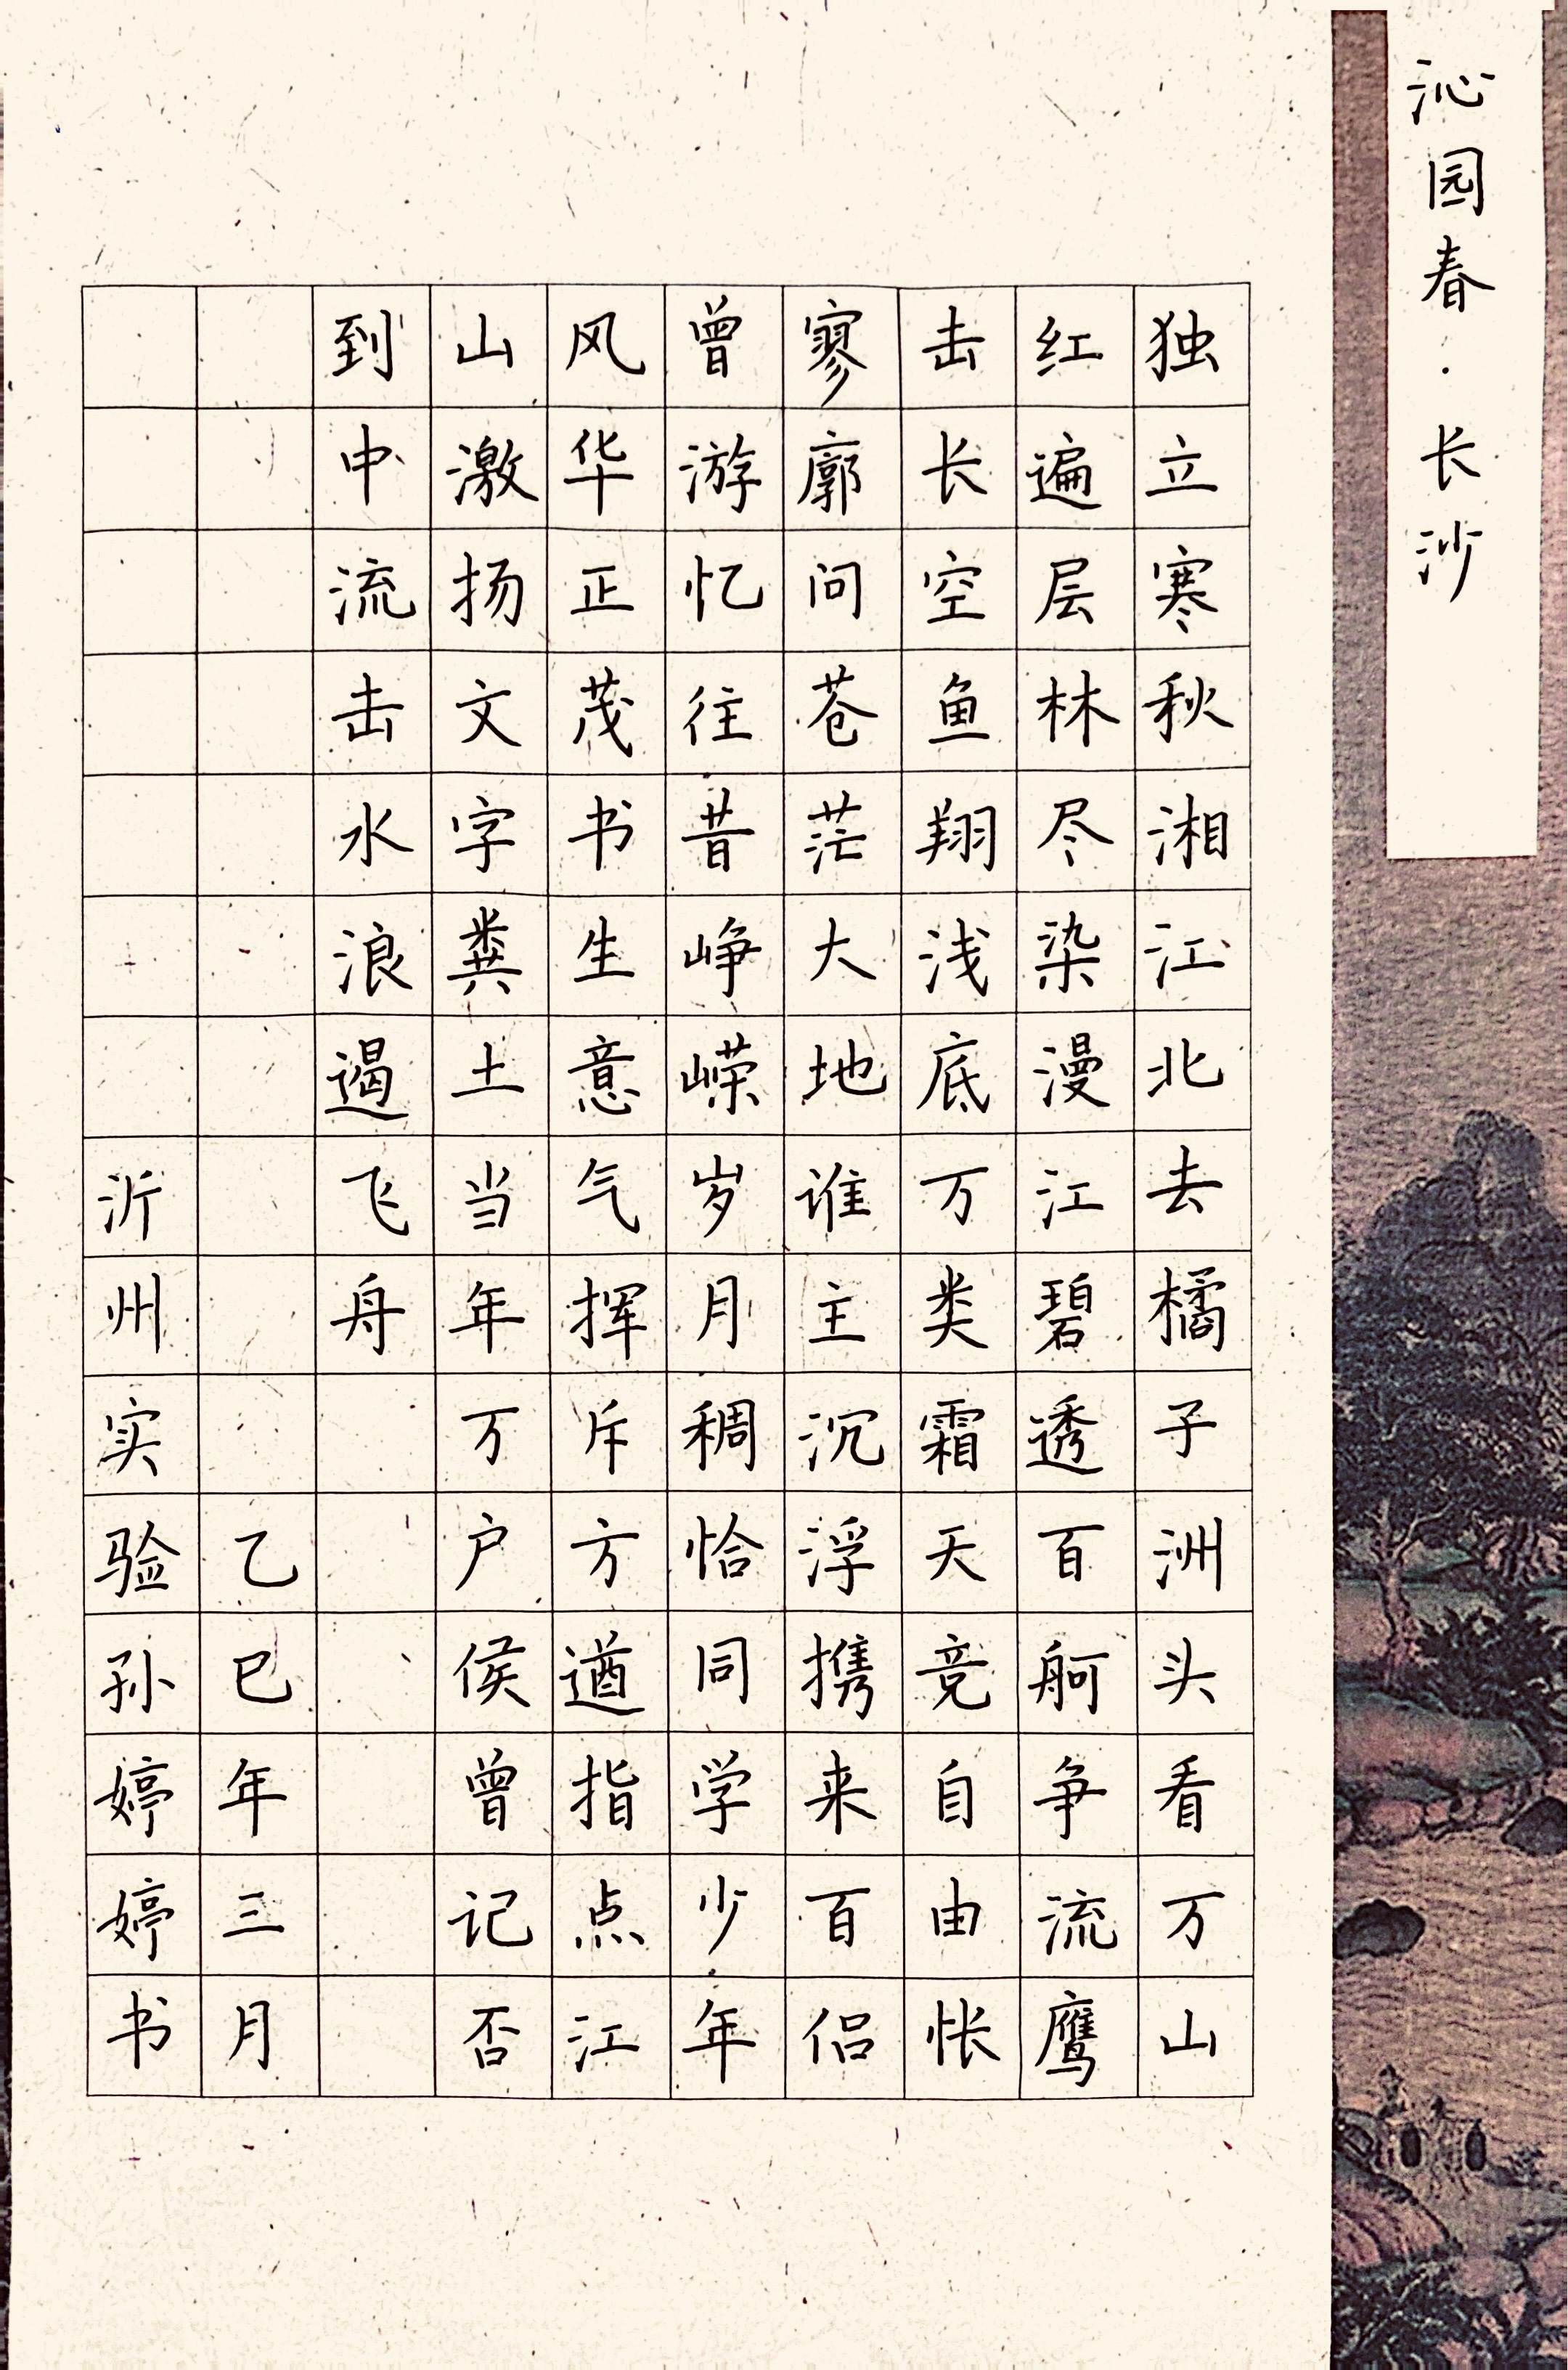 沁园春·长沙
独立寒秋湘江北去橘子洲头看万山
红遍层林尽染漫江碧透百舸争流鹰
击长空鱼翔浅底万类霜天竞自由怅
寥廓问苍茫大地谁主沉浮携来百侣
曾游忆往昔峥嵘岁月稠恰同学少年
风华正茂书生意气挥斥方遒指点江
山激扬文字粪土当年万户侯曾记否
到中流击水浪遏飞舟
乙巳年三月
沂州实验孙婷婷书